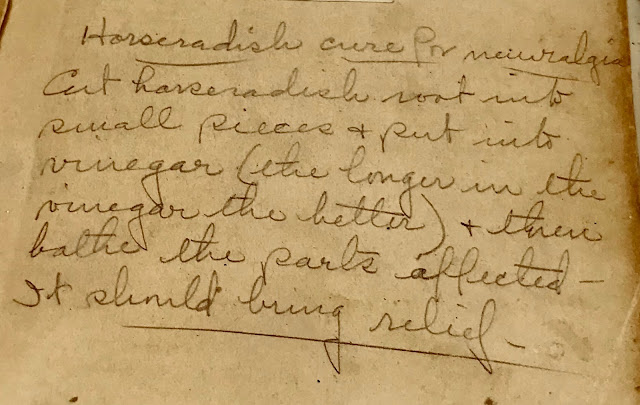 Horseradish cure for neuralgia
Cut horseradish root into
small pieces + put into
vinegar (the longer in the
vinegar the better) + then
bathe the parts affected –
It should bring relief –